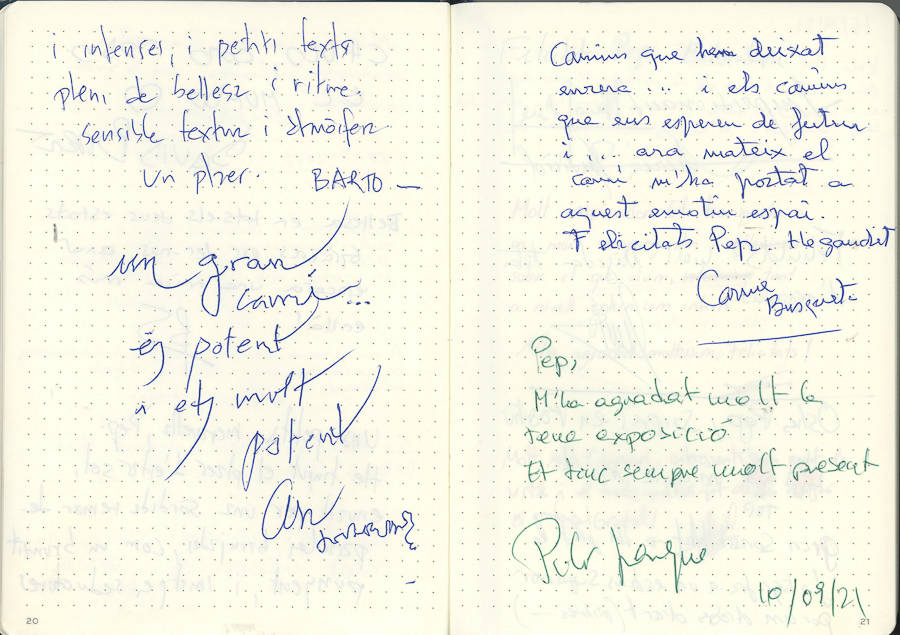 i intenses, i petits texts
plens de bellesa i ritme.
sensible textura i atmòsfera
Un plaer. BARTO —
un gran
camí...
és potent
i ets molt
potent
20
Camins que hem deixat
enrera... i els camins
que ens esperen de futur
i... ara mateix el
camí m'ha portat a
aquest emotiu espai.
Felicitats Pep He gaudit
Carme
Busquets
Pep,
M'ha agradat molt la
teva exposició
Et tinc sempre molt present
10/09/21
21